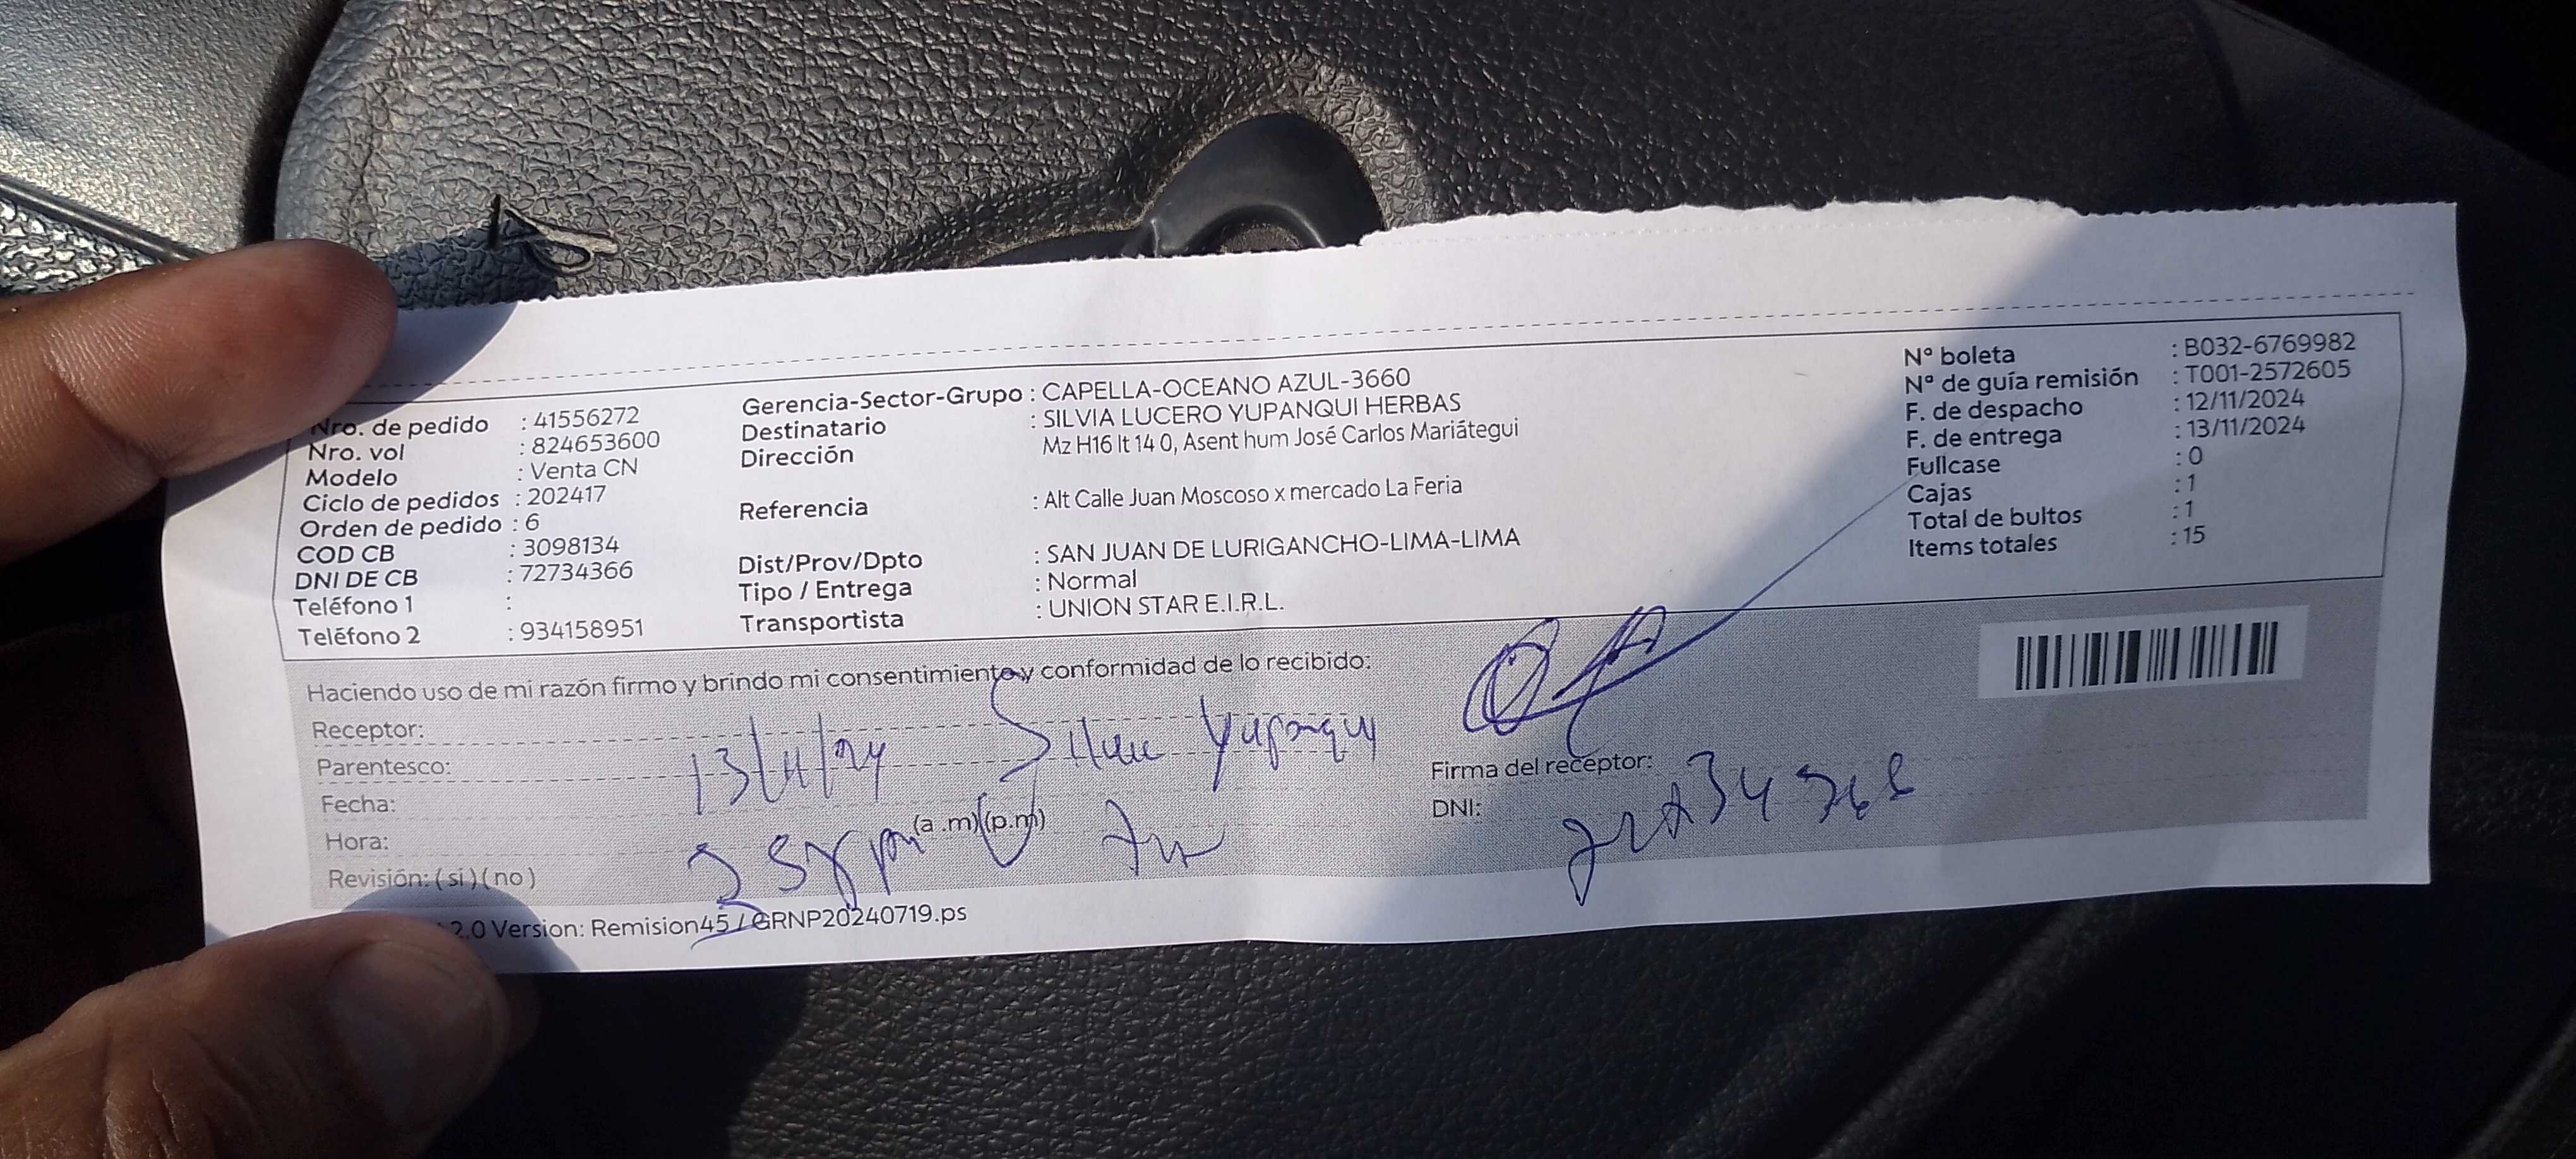 Nro. de pedido : 41556272
Nro. vol : 824653600
Modelo : Venta CN
Ciclo de pedidos : 202417
Orden de pedido : 6
COD CB : 3098134
DNI DE CB : 72734366
Teléfono 1 :
Teléfono 2 : 934158951
Gerencia-Sector-Grupo : CAPELLA-OCEANO AZUL-3660
Destinatario : SILVIA LUCERO YUPANQUI HERBAS
Dirección Mz H16 lt 14 0, Asent hum José Carlos Mariátegui
Referencia : Alt Calle Juan Moscoso x mercado La Feria
Dist/Prov/Dpto : SAN JUAN DE LURIGANCHO-LIMA-LIMA
Tipo / Entrega : Normal
Transportista : UNION STAR E.I.R.L.
Nº boleta : B032-6769982
Nª de guía remisión : T001-2572605
F. de despacho : 12/11/2024
F. de entrega : 13/11/2024
Fullcase : 0
Cajas : 1
Total de bultos : 1
Items totales : 15
Haciendo uso de mi razón firmo y brindo mi consentimiento y conformidad de lo recibido:
Receptor:
Parentesco: 13/11/24 Yupanqui
Fecha:
Hora: (a .m)(p.m)
Revisión: ( si ) ( no )
Firma del receptor:
DNI:
2.0 Version: Remision45 / GRNP20240719.ps